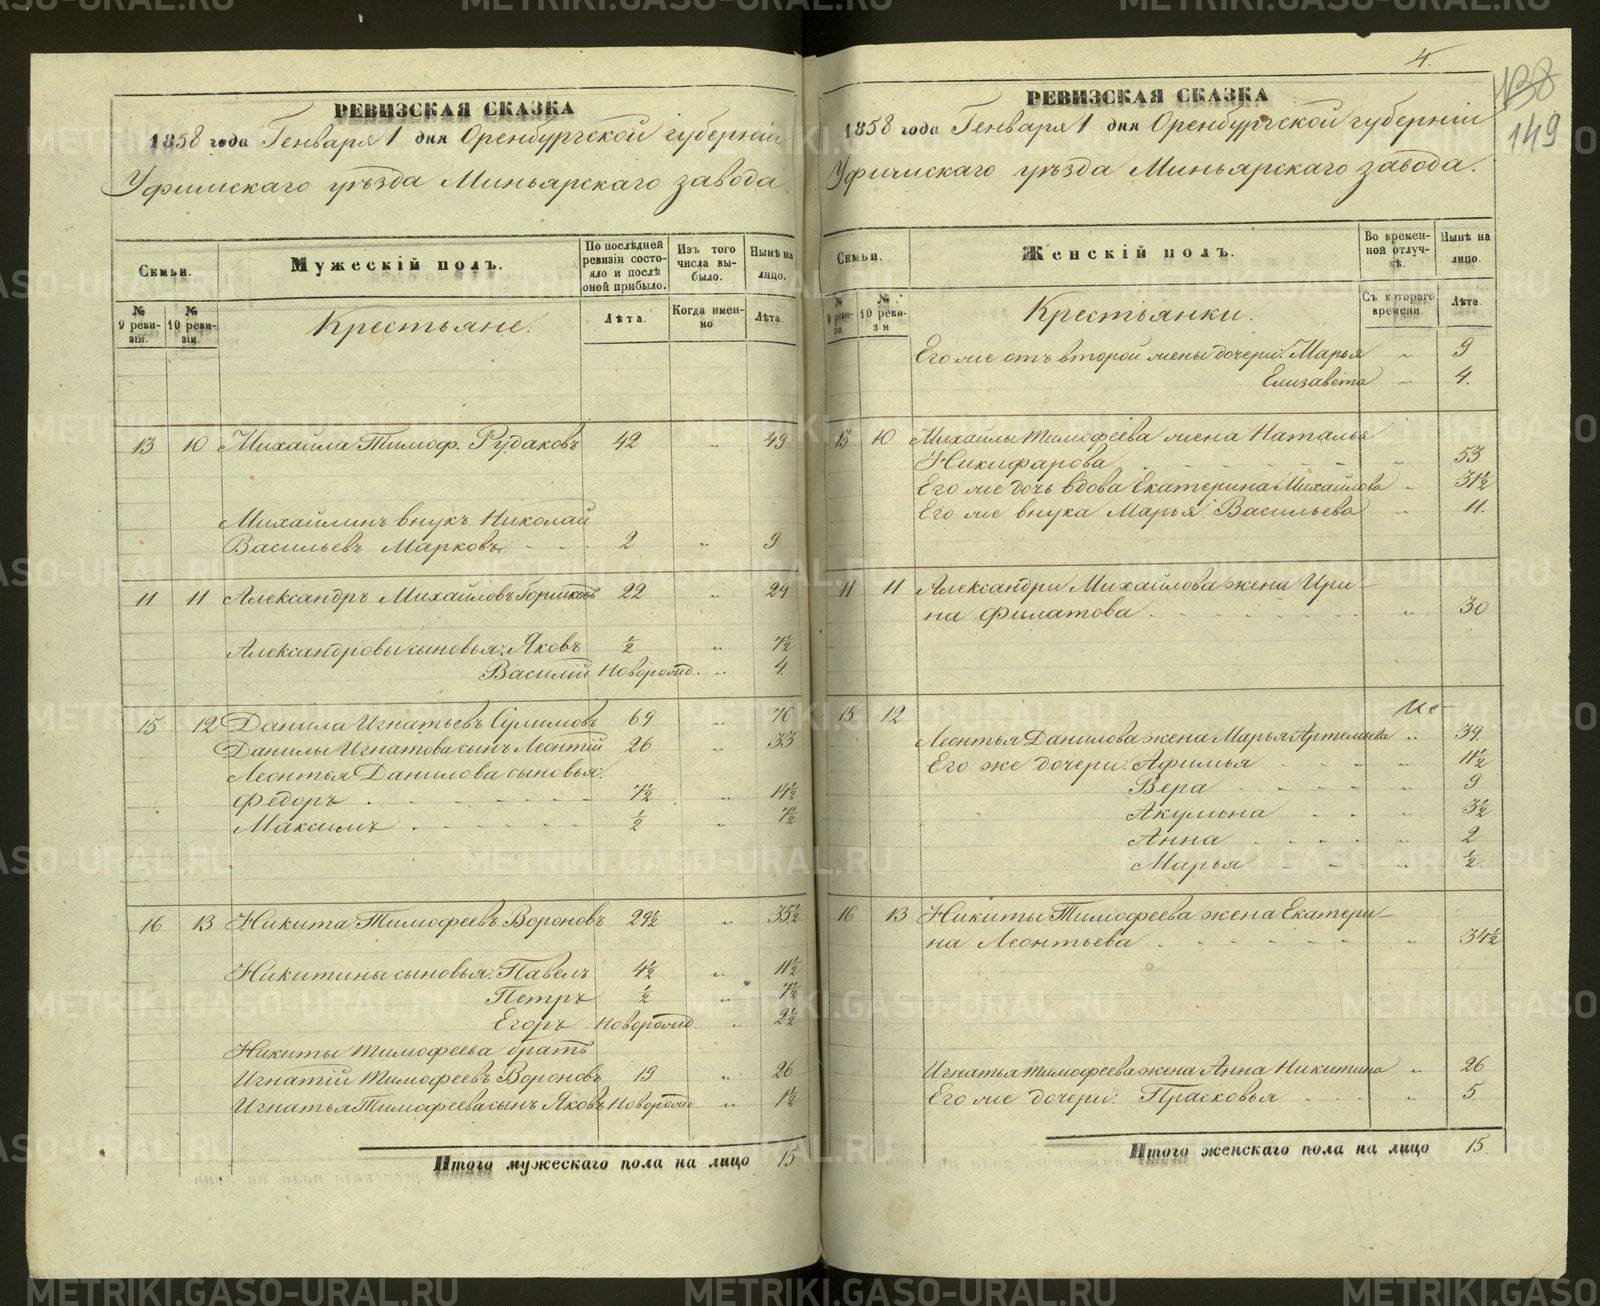 РЕВИЗСКАЯ СКАЗКА
1858 года Генваря 1 дня Оренбургской губернiи
Уфимскаго уѣзда Миньярскаго завода.
Семьи.
Мужескiй полъ.
По послѣдней ревизiи состояло и послѣ оной прибыло.
Изъ того числа выбыло.
Нынѣ на лицо.
№ 9 ревизiи.
№ 10 ревизiи.
Крестьяне.
Лѣта.
Когда именно
Лѣта.
13 10 Михайла Тимоф. Рудаковъ 42 „ 49
Михайлинъ внукъ Николай
Васильевъ Марковъ 2 „ 9
11 11 Александръ Михайловъ Горшковъ 22 „ 29
Александровы сыновья: Яковъ ½ „ 7½
Василiй Новорожд. „ 4.
15 12 Данила Игнатьевъ Сулимовъ 69 „ 76
Данилы Игнатова сынъ Леонтiй 26 „ 33
Леонтья Данилова сыновья:
Федоръ 7½ „ 14½
Максимъ ½ „ 7½
16 13 Никита Тимофеевъ Вороновъ 29½ „ 35½
Никитины сыновья: Павелъ 4½ „ 11½
Петръ ½ „ 7½
Егоръ Новорожд. „ 2½
Никиты Тимофеева братъ
Игнатiй Тимофеевъ Вороновъ 19 „ 26
Игнатья Тимофеева сынъ Яковъ Новорожд. „ 1½
Итого мужескаго пола на лицо 15
4.
138
149
РЕВИЗСКАЯ СКАЗКА
1858 года Генваря 1 дня Оренбургской губернiи
Уфимскаго уѣзда Миньярскаго завода.
Семьи.
Женскiй полъ.
Во временной отлучкѣ.
Нынѣ на лицо.
№ 9 ревизiи
№ 10 ревизiи
Крестьянки.
Съ котораго времени
Лѣта.
Его же отъ второй жены дочери: Марья „ 9
Елизавета „ 4.
13 10 Михайлы Тимофеева жена Наталья
Никифарова „ 53
Его же дочь вдова Екатерина Михайлова „ 31½
Его же внука Марья Васильева „ 11.
11 11 Александры Михайлова жена Ири-
на Филатова „ 30
15 12
Леонтья Данилова жена Марья Артемьева „ 39.
Его же дочери: Афимья „ 11½
Вера „ 9
Акулина „ 3½
Анна „ 2
Марья „ ½.
16 13 Никиты Тимофеева жена Екатери-
на Леонтьева „ 34½
Игнатья Тимофеева жена Анна Никитина „ 26
Его же дочери: Прасковья „ 5.
Итого женскаго пола на лицо 15.
METRIKI.GASO-URAL.RU